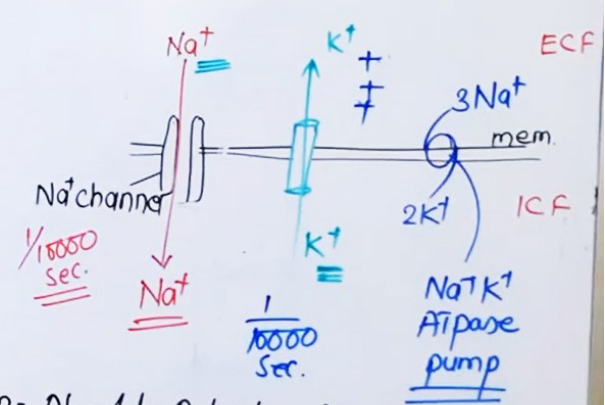 Na⁺
K⁺
ECF
+
+
+
3Na⁺
mem.
Na⁺channel
2K⁺
ICF
1/10000
sec.
K⁺
Na⁺
1
10000
Sec.
Na⁺K⁺
ATpase
pump